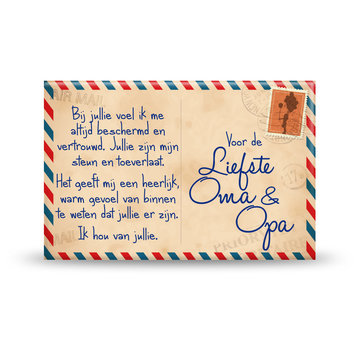 AIR MAIL
Bij jullie voel ik me
altijd beschermd en
vertrouwd. Jullie zijn mijn
steun en toeverlaat.
Het geeft mij een heerlijk,
warm gevoel van binnen
te weten dat jullie er zijn.
Ik hou van jullie.
Voor de
Liefste
Oma &
Opa